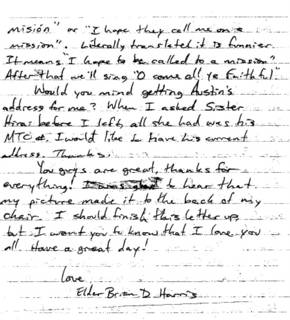 misión" or "I hope they call me on a
mission". Literally translated it is funnier.
It means "I hope to be called to a mission".
After that we'll sing "O come all ye Faithful".
Would you mind getting Austin's
address for me? When I asked Sister
before I left, all she had was his
MTC I would like to have his current
address. Thanks.
You guys are great, thanks for
everything! to hear that
my picture made it to the back of my
chair. I should finish this letter up
but I want you to know that I love you
all. Have a great day!
love
Elder Brian D. Harris